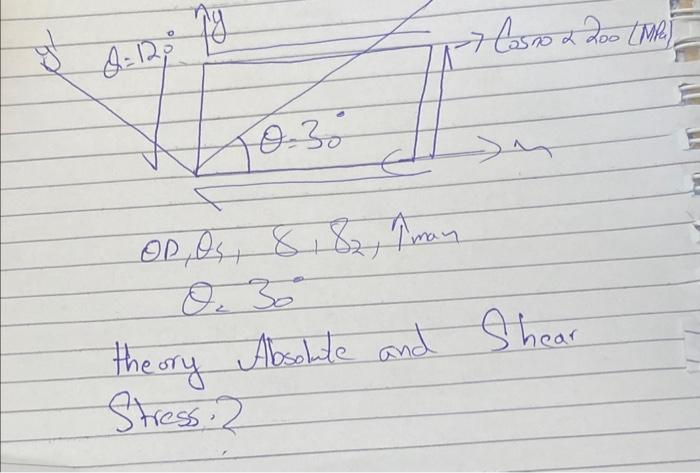 y
y'
θ=120°
200 (MPa)
θ=30°
θP, θs, δ1 δ2, τmax
θ= 30°
theory Absolute and Shear
Stress.?